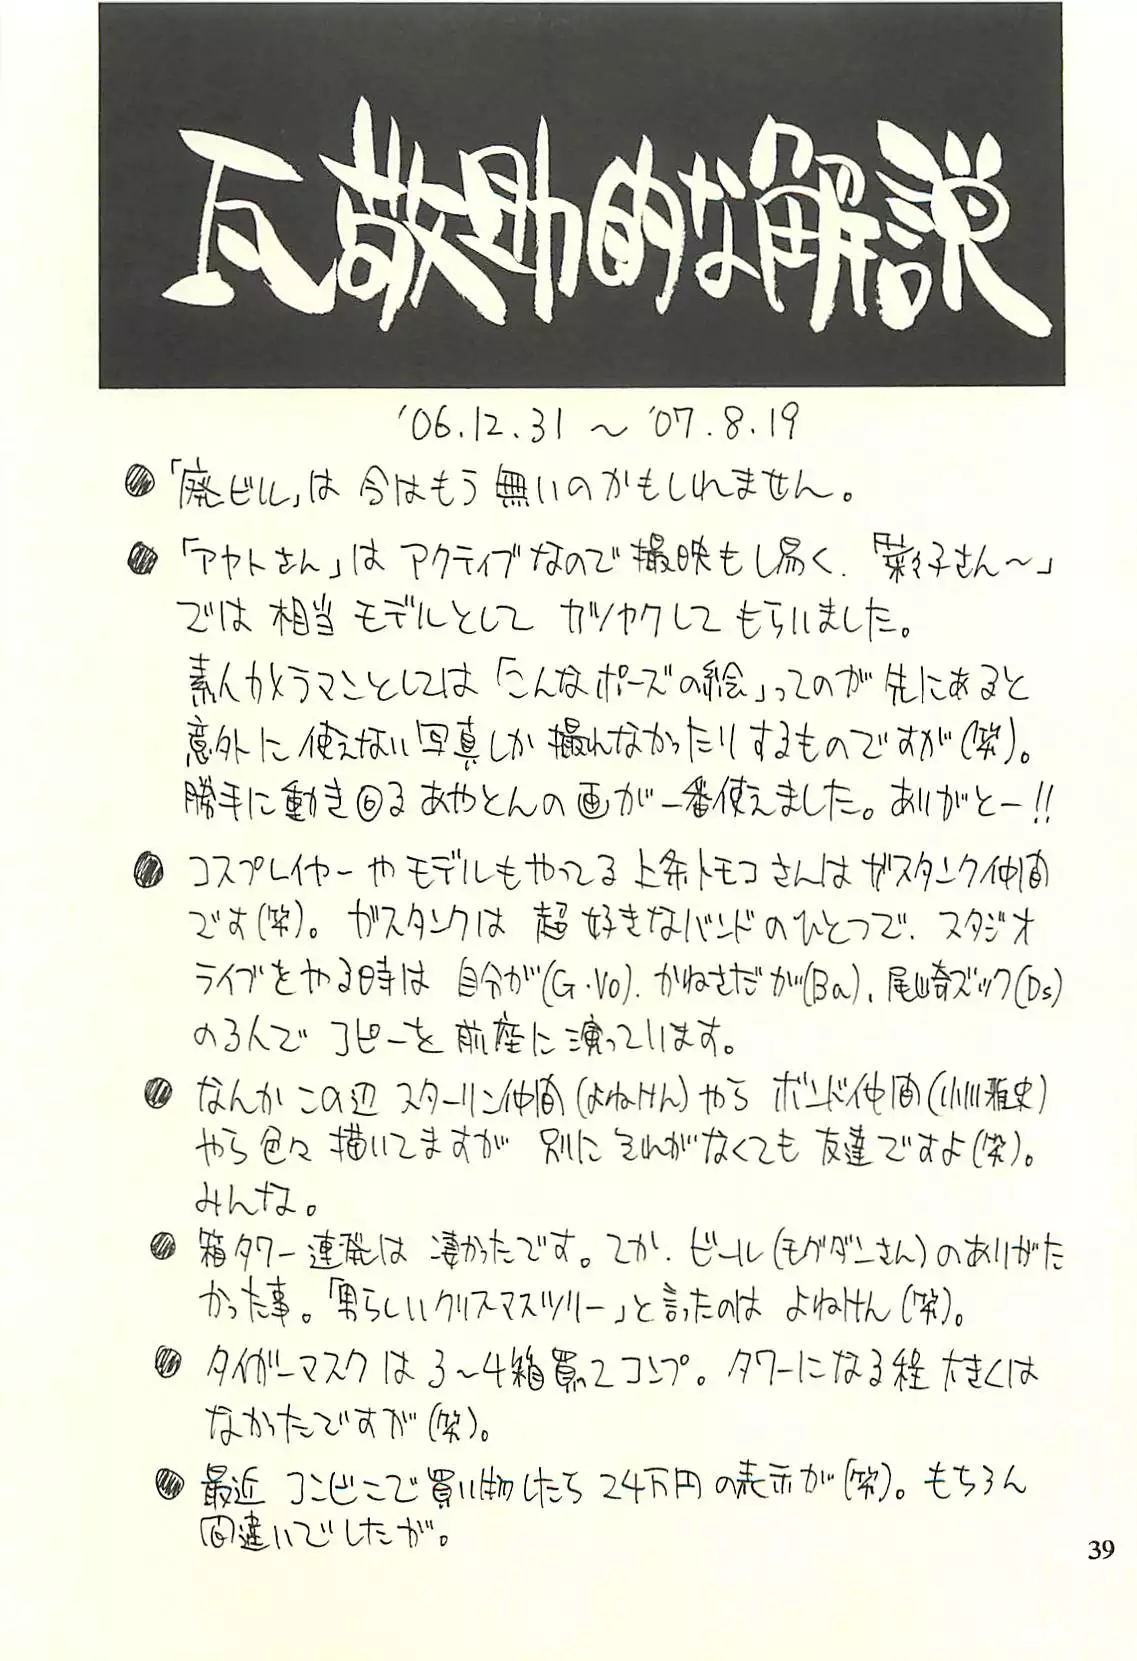 瓦敬助的な解説
'06.12.31 〜 '07.8.19
●「廃ビル」は 今はもう 無いのかもしれません。
●「アヤトさん」は アクティブなので 撮映もし易く、「菜々子さん〜」
では 相当 モデルとして カツヤクして もらいました。
素人カメラマンとしては「こんなポーズの絵」ってのが 先にあると
意外に 使えない写真しか 撮れなかったりするものですが(笑)。
勝手に動き回る あやとんの 画が 一番使えました。ありがとー!!
● コスプレイヤーや モデルもやってる 上条トモコさんは ガスタンク仲間
です(笑)。 ガスタンクは 超 好きなバンドのひとつで、スタジオ
ライブをやる時は 自分が(G・Vo)、かねさだが(Ba)、尾崎ズック(Ds)
のるんで コピーを 前座に 演っています。
● なんか この辺 スターリン仲間(よねけん)やら ボンド仲間(小川雅史)
やら色々 描いてますが 別に それがなくても 友達ですよ(笑)。
みんな。
● 箱タワー 連発は 凄かったです。てか、ビール(モグダンさん)のありがた
かった事。「男らしいクリスマスツリー」と言ったのは よねけん(笑)。
● タイガーマスク は 3〜4箱買って コンプ。タワーになる程 大きくは
なかったですが(笑)。
● 最近 コンビニで 買い物したら 24万円の表示が(笑)。もちろん
間違いでしたが。
39